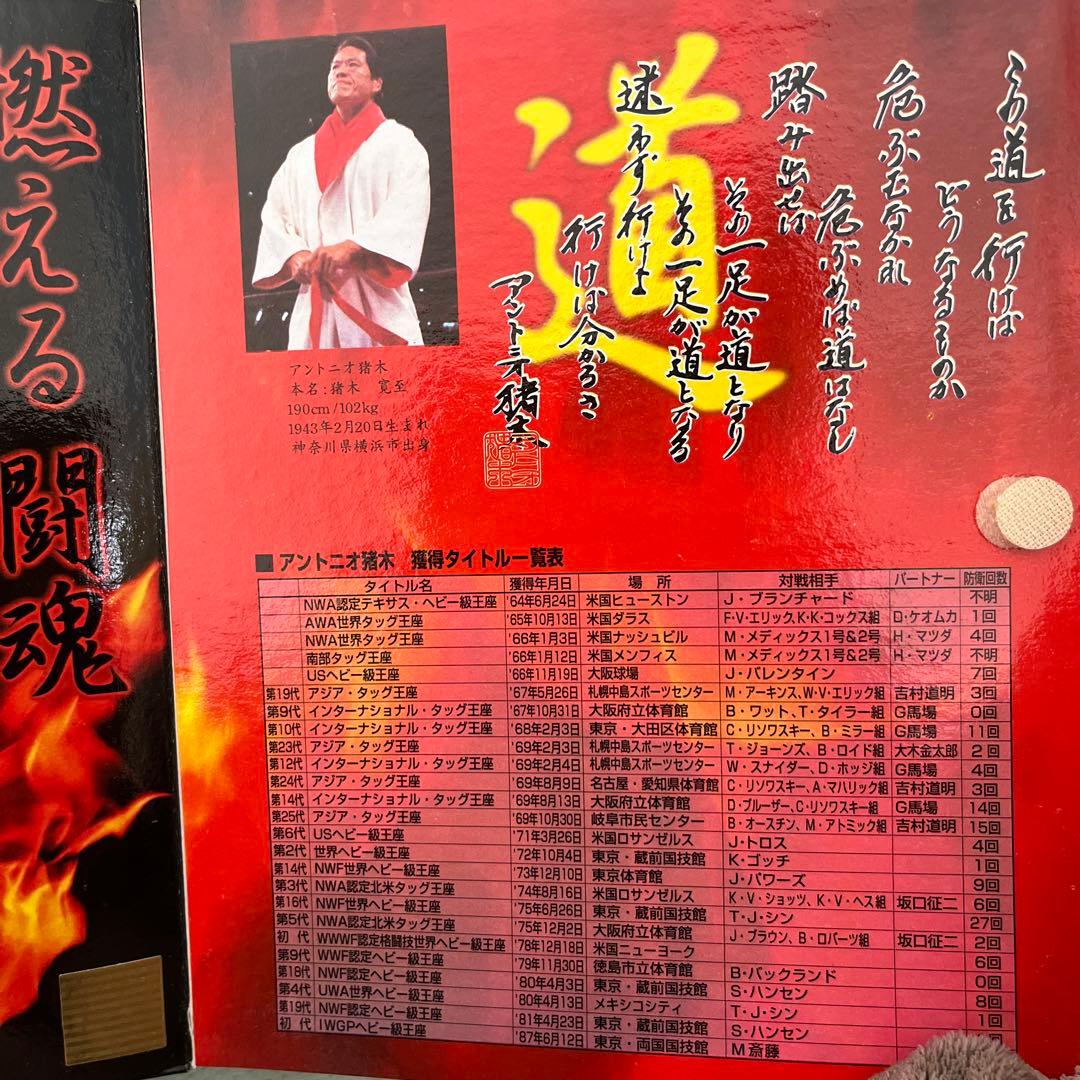 燃える闘魂
道
この道を行けば
どうなるものか
危ぶむなかれ
危ぶめば道はなし
踏み出せば
その一足が道となり
その一足が道となる
迷わず行けよ
行けば分かるさ
アントニオ猪木
アントニオ猪木
本名:猪木 寛至
190cm/102kg
1943年2月20日生まれ
神奈川県横浜市出身
■ アントニオ猪木 獲得タイトル一覧表
タイトル名 獲得年月日 場所 対戦相手 パートナー 防衛回数
NWA認定テキサス・ヘビー級王座 '64年6月24日 米国ヒューストン J・ブランチャード 不明
AWA世界タッグ王座 '65年10月13日 米国ダラス F・V・エリック,K・K・コックス組 D・ケオムカ 1回
NWA世界タッグ王座 '66年1月3日 米国ナッシュビル M・メディックス1号&2号 H・マツダ 4回
南部タッグ王座 '66年1月12日 米国メンフィス M・メディックス1号&2号 H・マツダ 不明
USヘビー級王座 '66年11月19日 大阪球場 J・バレンタイン 7回
第19代 アジア・タッグ王座 '67年5月26日 札幌中島スポーツセンター M・アーキンス、W・V・エリック組 吉村道明 3回
第9代 インターナショナル・タッグ王座 '67年10月31日 大阪府立体育館 B・ワット、T・タイラー組 G馬場 0回
第10代 インターナショナル・タッグ王座 '68年2月3日 東京・大田区体育館 C・リソワスキー、B・ミラー組 G馬場 11回
第23代 アジア・タッグ王座 '69年2月3日 札幌中島スポーツセンター T・ジョーンズ、B・ロイド組 大木金太郎 2回
第12代 インターナショナル・タッグ王座 '69年2月4日 札幌中島スポーツセンター W・スナイダー、D・ホッジ組 G馬場 4回
第24代 アジア・タッグ王座 '69年8月9日 名古屋・愛知県体育館 C・リソワスキー、A・マハリック組 吉村道明 3回
第14代 インターナショナル・タッグ王座 '69年8月13日 大阪府立体育館 D・ブルーザー、C・リソワスキー組 G馬場 14回
第25代 アジア・タッグ王座 '69年10月30日 岐阜市民センター B・オースチン、M・アトミック組 吉村道明 15回
第6代 USヘビー級王座 '71年3月26日 米国ロサンゼルス J・トロス 4回
第2代 世界ヘビー級王座 '72年10月4日 東京・蔵前国技館 K・ゴッチ 1回
第14代 NWF世界ヘビー級王座 '73年12月10日 東京体育館 J・パワーズ 9回
第3代 NWA認定北米タッグ王座 '74年8月16日 米国ロサンゼルス K・V・ショッツ、K・V・ヘス組 坂口征二 6回
第16代 NWF世界ヘビー級王座 '75年6月26日 東京・蔵前国技館 T・J・シン 27回
第5代 NWA認定北米タッグ王座 '75年12月2日 大阪府立体育館 J・ブラウン、B・ロバーツ組 坂口征二 2回
初代 WWWF認定格闘技世界ヘビー級王座 '78年12月18日 米国ニューヨーク 6回
第9代 WWF認定ヘビー級王座 '79年11月30日 徳島市立体育館 B・バックランド 0回
第18代 NWF認定ヘビー級王座 '80年4月3日 東京・蔵前国技館 S・ハンセン 8回
第4代 UWA世界ヘビー級王座 '80年4月13日 メキシコシティ T・J・シン 1回
第19代 NWF認定ヘビー級王座 '81年4月23日 東京・蔵前国技館 S・ハンセン
初代 IWGPヘビー級王座 '87年6月12日 東京・両国国技館 M斎藤